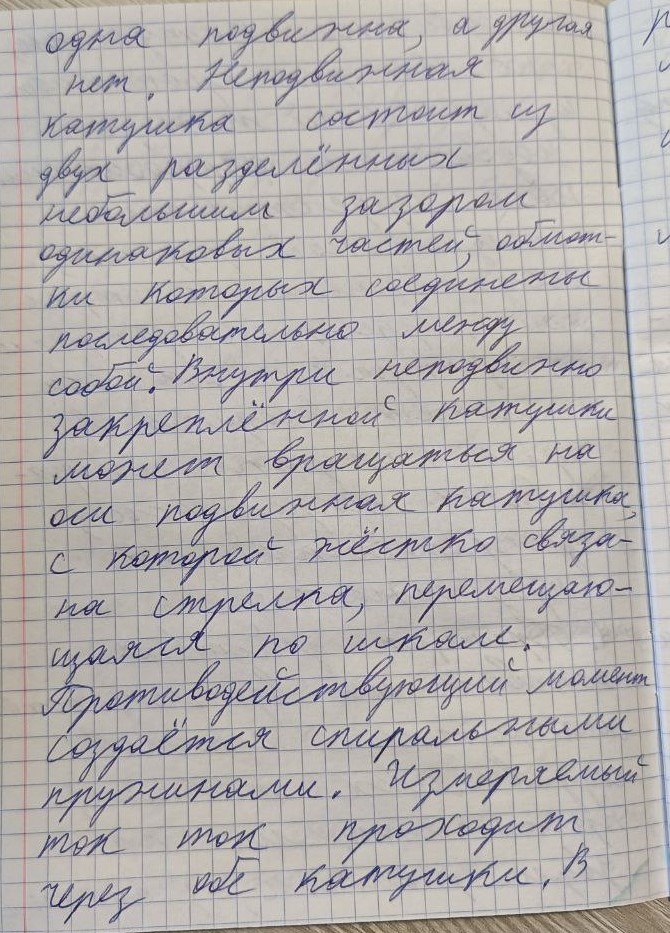 одна подвижна, а другая
нет. Неподвижная
катушка состоит из
двух разделённых
небольшим зазором
одинаковых частей, обмот-
ки которых соединены
последовательно между
собой. Внутри неподвижно
закреплённой катушки
может вращаться на
оси подвижная катушка,
с которой жёстко связа-
на стрелка, перемещаю-
щаяся по шкале.
Противодействующий момент
создаётся спиральными
пружинами. Измеряемый
ток ток проходит
через обе катушки. В